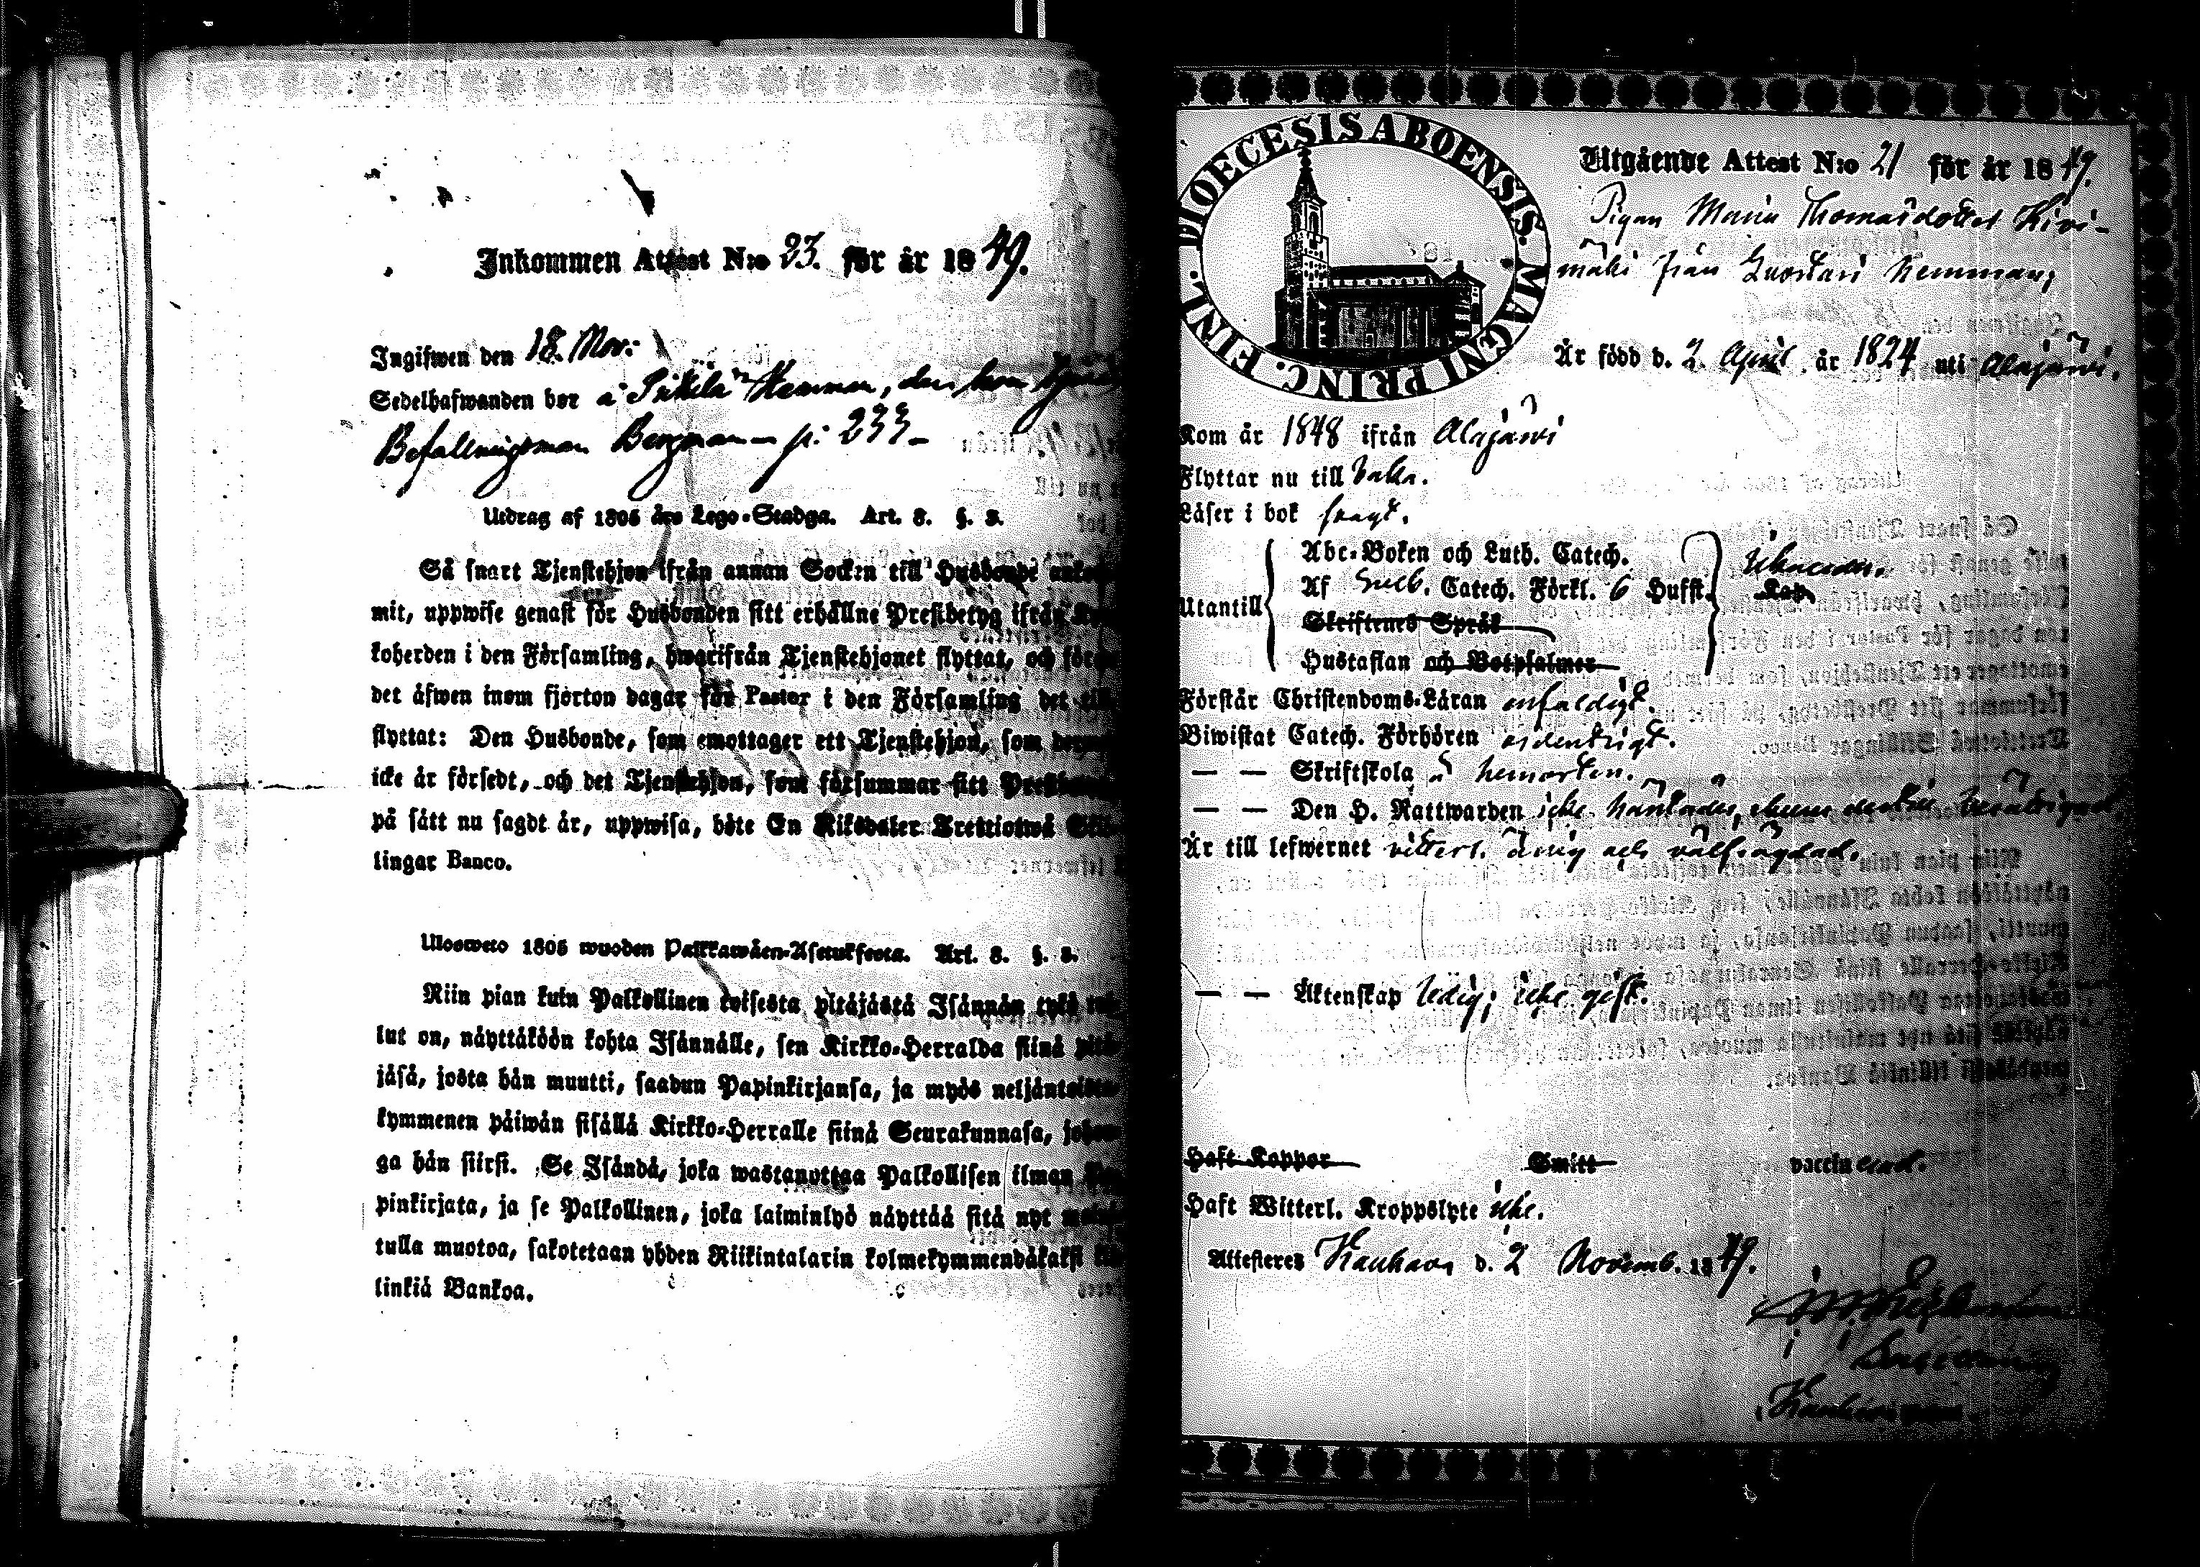 Inkommen Attest N:o 23. för år 1849.
Ingifwen den 18. Nov:
Sedelhafwanden bor å Hemman, den hos
Befallningsman Bergman p: 233
Utdrag af 1805 års Lego-Stadga. Art. 3. §. 3.
Så snart Tjenstehjon ifrån annan Socken till Husbonde
mit, uppwise genast för Husbonden sitt erhållne Prestbetyg ifrån
koherden i den Församling, hwarifrån Tjenstehjonet flyttat, och
det äfwen inom fjorton dagar för Pastor i den Församling det
flyttat: Den Husbonde, som emottager ett Tjenstehjon, som
icke är försedt, och det Tjenstehjon, som försummar sitt
på sätt nu sagdt är, uppwisa, böte En Riksdaler Trettiotwå
lingar Banco.
Ulosweto 1805 wuoden Palkkawäen-Asetuksesta. Art. 3. §. 3.
Niin pian kuin Palkollinen toisesta pitäjästä Isännän tykö
lut on, näyttäköön kohta Isännälle, sen Kirkko-Herralda siinä
jäsä, josta hän muutti, saadun Papinkirjansa, ja myös
kymmenen päiwän sisällä Kirkko-Herralle siinä Seurakunnasa,
ga hän siirsi. Se Isändä, joka wastanottaa Palkollisen ilman
pinkirjata, ja se Palkollinen, joka laiminlyö näyttää sitä nyt
tulla muotoa, sakotetaan yhden Riikintalarin kolmekymmendäkaksi
linkiä Bankoa.
DIOECESIS ABOENSIS. MAGNI PRINC. FINL.
Utgående Attest N:o 21 för år 1849.
Pigan Maria Thomasdotter Kivi-
mäki från Hemman,
Är född d. 2 April år 1824 uti Alajärvi.
Kom år 1848 ifrån Alajärvi
Flyttar nu till
Läser i bok svagt.
Abc-Boken och Luth. Catech.
Af Catech. Förkl. 6 Hufst.
Kap
Utantill
Skriftenes Språk
Hustaflan och Botpsalmer
Förstår Christendoms-Läran enfaldigt.
Biwistat Catech. Förhören ordentligt.
— — Skriftskola å hemorten.
— — Den H. Nattwarden icke
Är till lefwernet vitterl. ärlig och välfrägdad.
— — Äktenskap ledig; icke gift.
Haft Koppor Smitt vaccinerad.
Haft Witterl. Kroppslyte icke.
Attesteres Kauhava d. 2 Novemb. 1849.